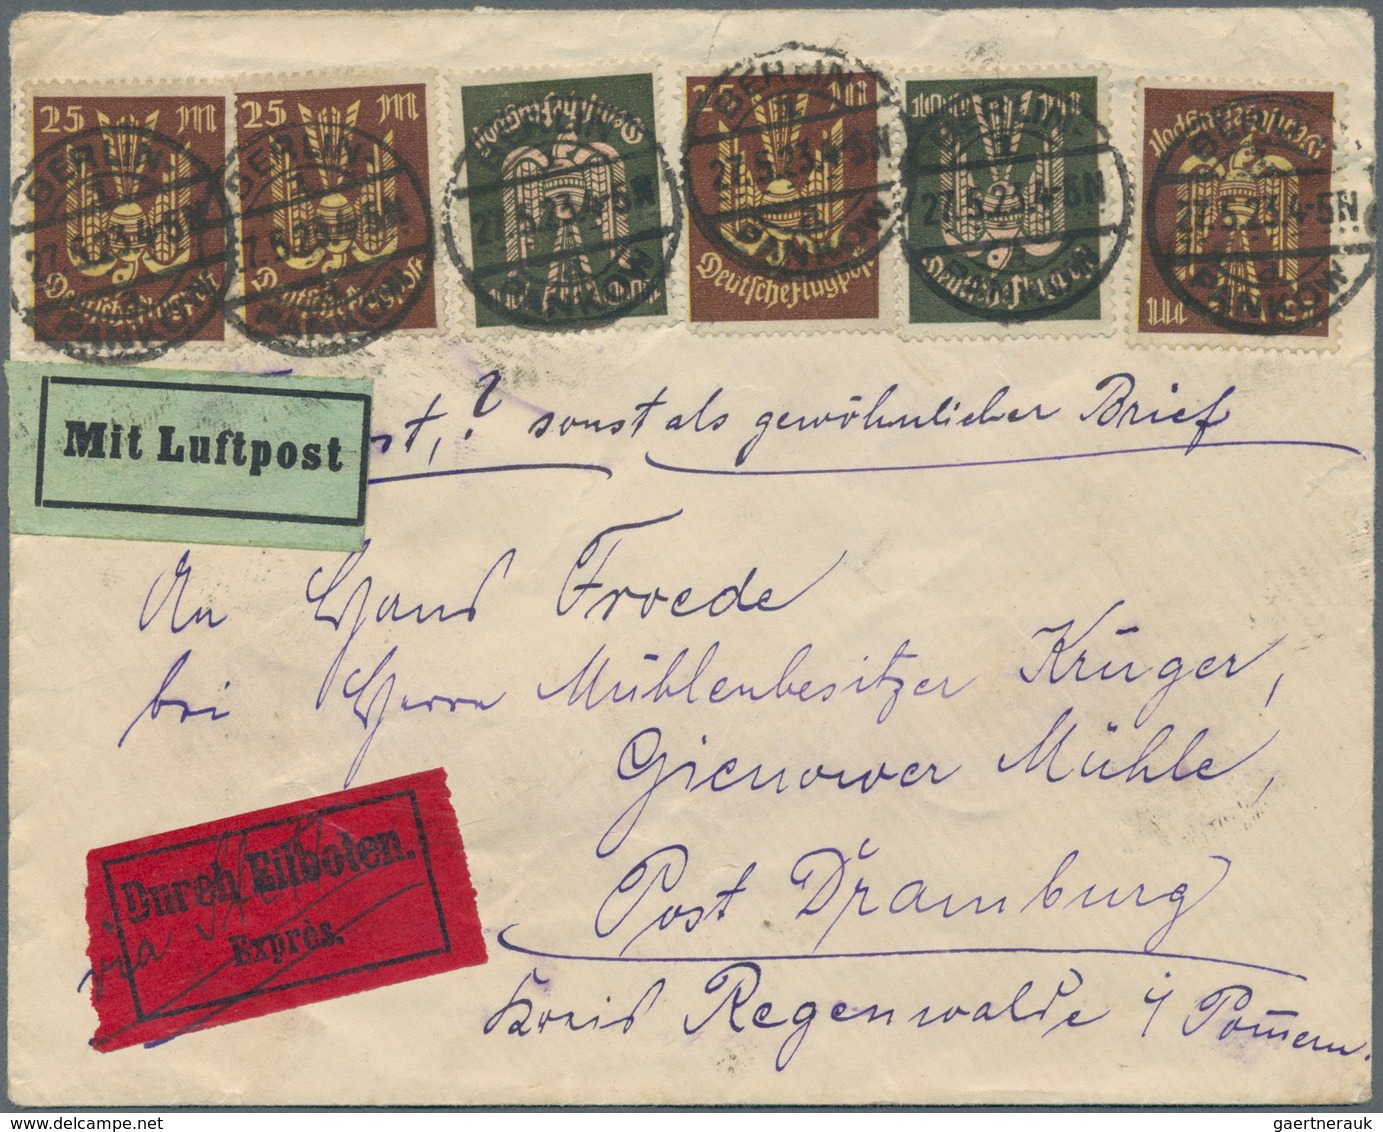 25 M
Deutsche Flugpost
25 M
Deutsche Flugpost
Deutsche Flugpost
25 M
Deutsche Flugpost
Deutsche Flugpost
Deutsche Flugpost
M
BERLIN-
27.5.23.4-5N
PANKOW
BERLIN-
7.5.23.4-5N
PANKOW
BERLIN-
27.5.23.4-5N
PANKOW
BERLIN-
1
27.5.23.4-5N
a
PANKOW
BERLIN-
27.5.23.4-5N
PANKOW
BERLIN-
27.5.23.4-5N
PANKOW
Mit Luftpost
st,? sonst als gewöhnlicher Brief
An Hans Froede
bei Herrn Mühlenbesitzer Krüger,
Gienower Mühle,
Post Dramburg
Kreis Regenwalde i/ Pom̄ern.
Durch Eilboten.
Exprès.
via
delcampe.net
gaertnerauk